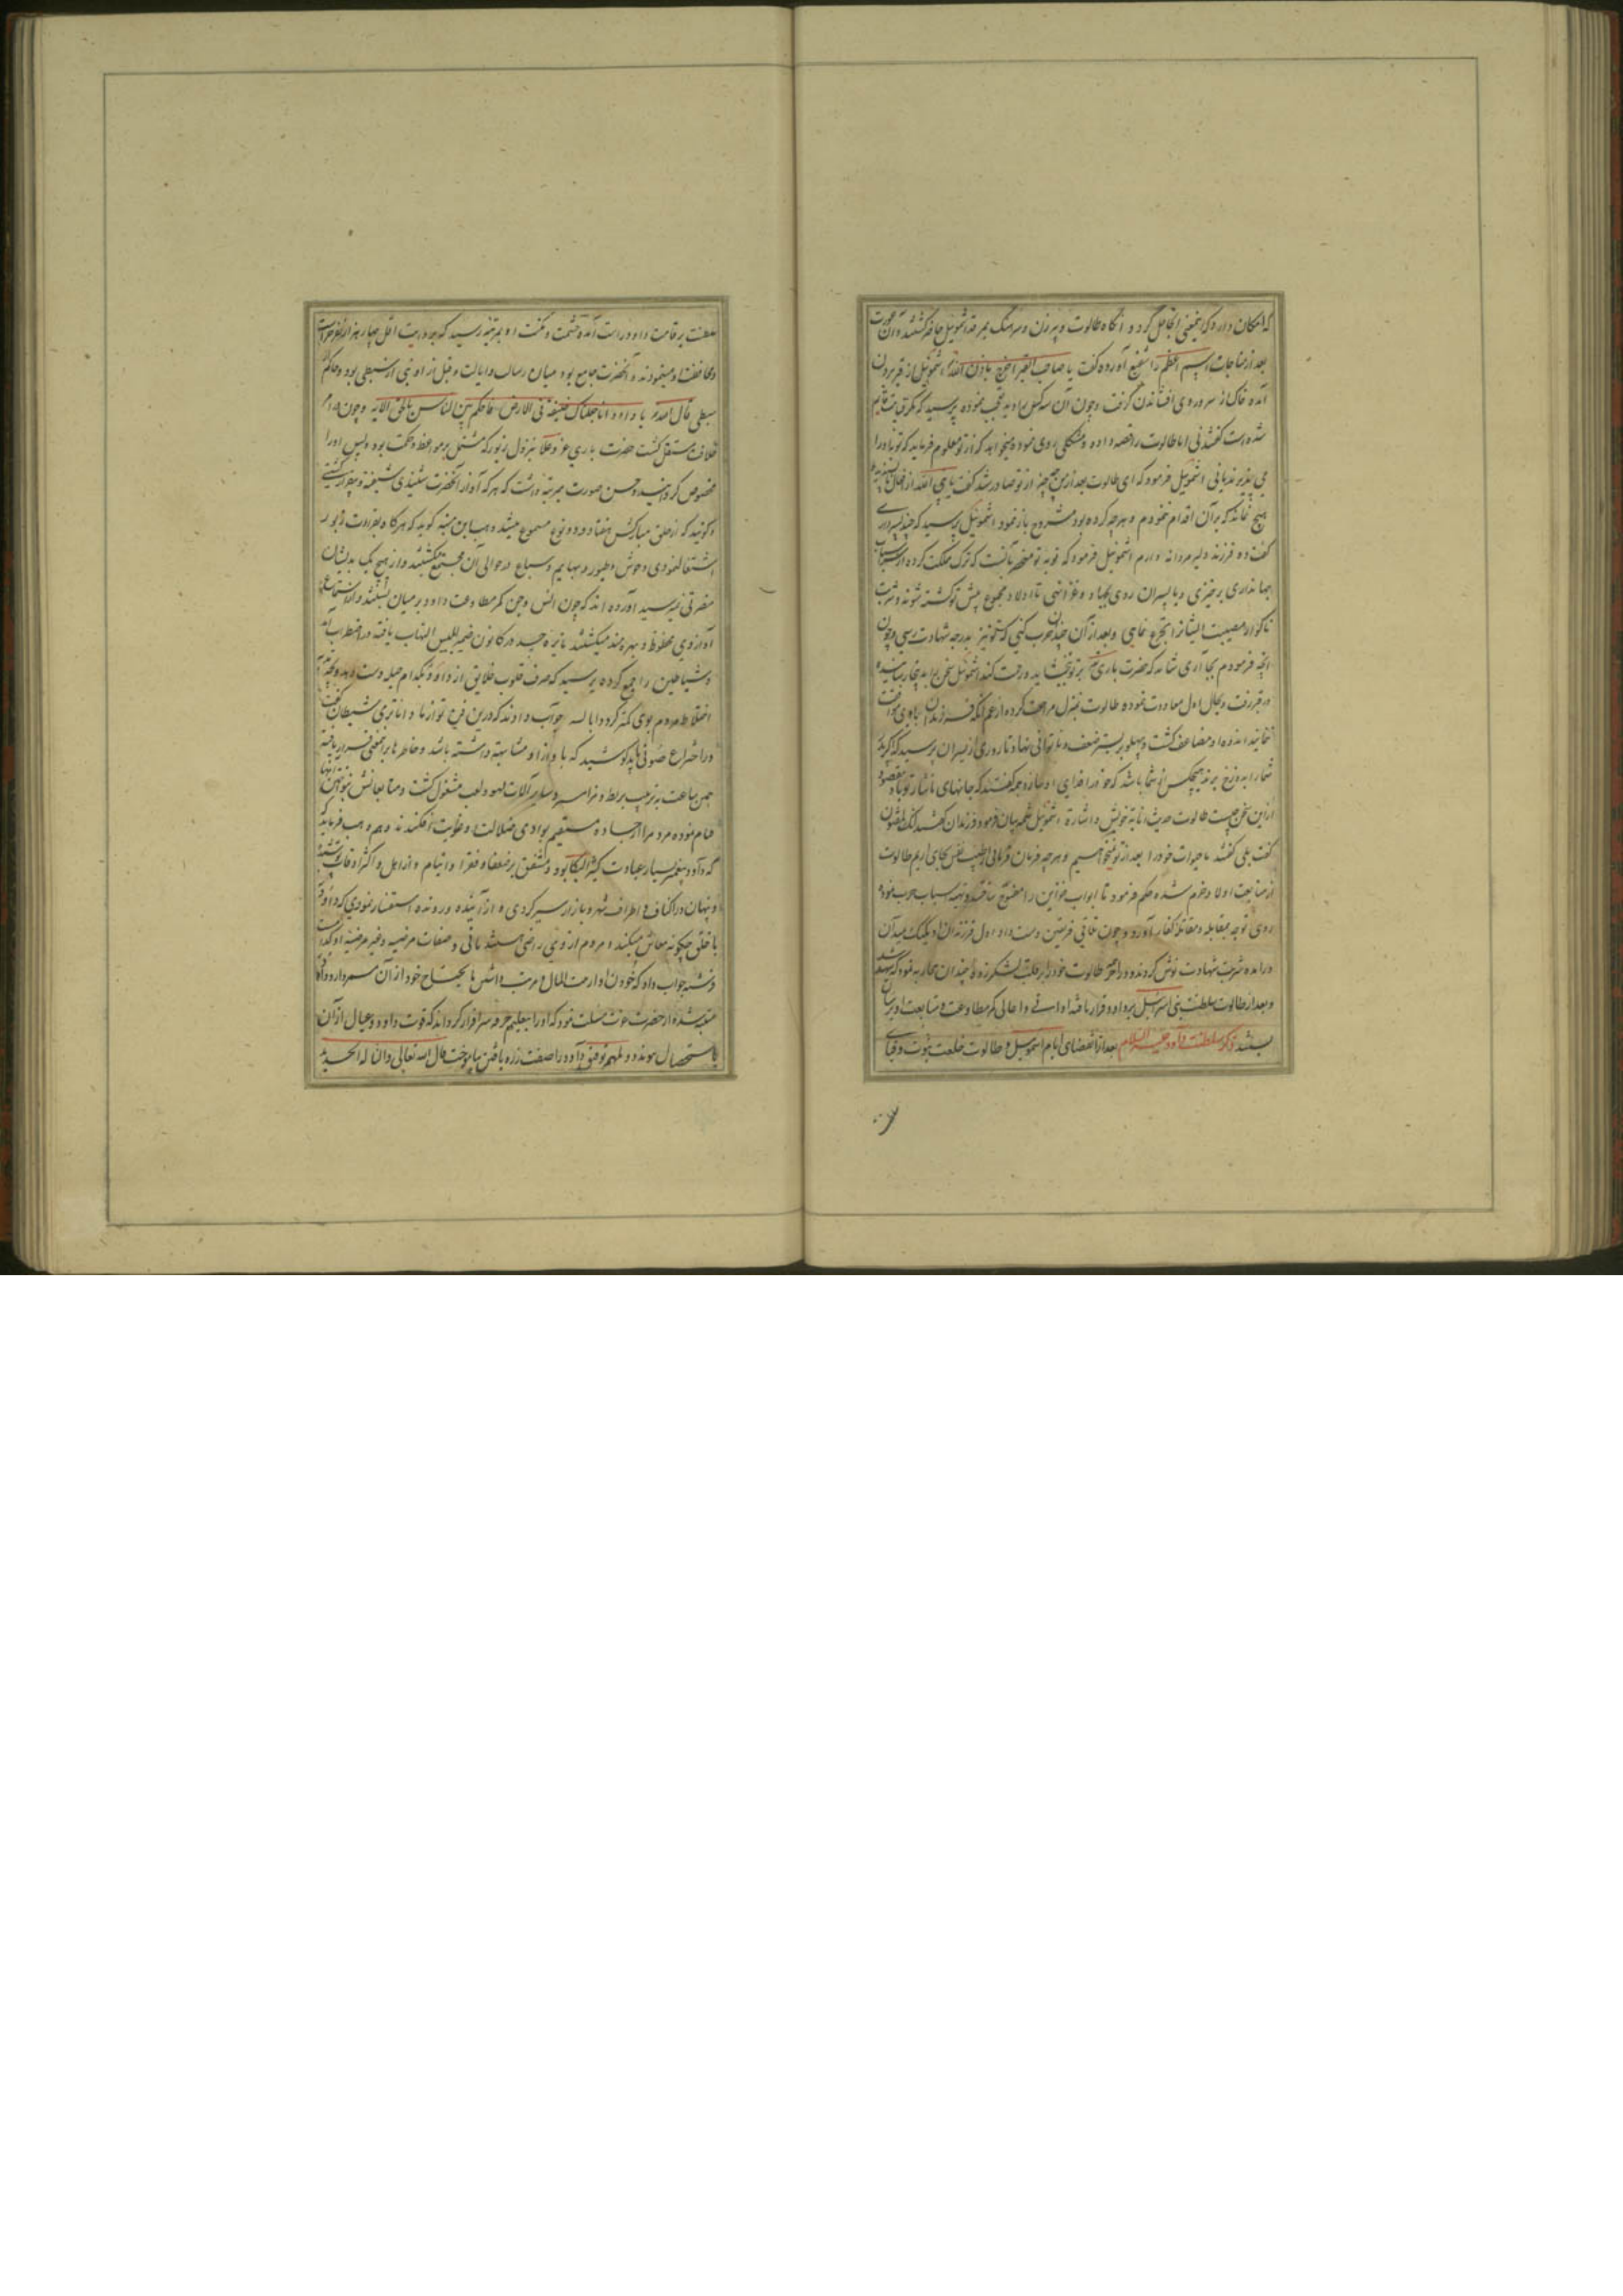 که امکان دارد که این معنی انجاح گردد و آنگاه طالوت و پیرزن و سرهنگ بمرقد اشموئیل حاضر گشتند و آن عورت
بعد از مناجات اسم اعظم را شفیع آورده گفت یا صاحب القبر اخرج باذن الله اشموئیل از قبر بیرون
آمده خاک از سر و روی افشاندن گرفت و چون آن سه کس را دید تعجب نموده پرسید که مگر قیامت قایم
شده است گفتند نی اما طالوت را قصه افتاده و مشکلی روی نموده میخواهد که از تو معلوم فرماید که توبه او را
می پذیرند یا نی اشموئیل فرمود که ای طالوت بعد از من چه چیز از تو صادر شد گفت یا نبی الله از افعال ناپسندیده
هیچ نماند که بر آن اقدام ننمودم و هرچه کرده بود مشروح باز نمود اشموئیل پرسید که چند پسر داری
گفت ده فرزند دلیر مردانه دارم اشموئیل فرمود که توبه تو منحصر بآنست که ترک مملکت کرده از اسباب
جهانداری برخیزی و با پسران روی بجهاد و غزا نهی تا اولاد مجموع پیش تو کشته شوند و شربت
ناگوار مصیبت ایشان را تجرع نمایی و بعد از آن چندان حرب کنی که تو نیز بدرجه شهادت رسی و چون
آنچه فرمودم بجا آری شاید که حضرت باری بر تو ببخشاید و رحمت کند اشموئیل سخن بدینجا رسانیده
در قبر رفت و بحال اول معاودت نموده و طالوت بمنزل مراجعت کرده از غم آنکه فرزندان با وی موافقت
نمایند اندوه او مضاعف گشت و پهلو بر بستر ضعف و ناتوانی نهاد تا روزی از پسران پرسید که اگر مرا
شما را بدوزخ برند هیچکس از شما باشد که خود را فدای او سازد همه گفتند که جانهای ما نثار تو باد مقصود
از این سخن چیست طالوت حدیث انابة خویش و اشارة اشموئیل علیه بیان فرمود فرزندان گفتند انک لمقتول
گفت بلی گفتند ما حیوات خود را بعد از تو نمیخواهیم و هرچه فرمان فرمائی از طیب نفس بجای آریم طالوت
از متابعت اولاد خرم شده حکم فرمود تا ابواب خزاین را مفتوح ساختند و تهیه اسباب حرب نموده
روی توجه بمقابله و مقاتله کفار آورد و چون تلاقی فریقین دست داد اول فرزندان او یک یک بمیدان
درآمده شربت شهادت نوش کردند و در آخر طالوت خود را بر قلب لشکر زد و چندان محاربه نمود که شهید شد
و بعد از طالوت سلطنت بنی اسرائیل بر داود قرار یافته ادانی و اعالی کمر مطاوعت و متابعت او بر میان
بستند ذکر سلطنت داود علیه السلام بعد از انقضای ایام اشموئیل و طالوت خلعت نبوت و قبای
سلطنت بر قامت داود راست آمده حشمت و مکنت او بمرتبه رسید که بروایت اقل چهار هزار نفر حراست
و محافظت او مینمودند و آنحضرت جامع بود میان رسالت و ایالت و قبل از او نبی از سبطی بود و حاکم از
سبطی قال الله یا داود انا جعلناک خلیفة فی الارض فاحکم بین الناس بالحق الایه و چون در امر
خلافت مستقل گشت حضرت باری عز و علا بنزول زبور که مشتمل بر مواعظ و حکمت بود ویس او را
مخصوص گردانید و حسن صورت بمرتبه داشت که هر که آواز آنحضرت شنیدی شیفته و بیقرار گشتی
و گویند که از حلق مبارکش هفتاد و دو نوع مسموع میشد وهب ابن منبه گوید که هرگاه بقراءت زبور
اشتغال نمودی وحوش و طیور و بهایم و سباع در حوالی آن مجتمع گشتند و از هیچ یک بدیشان
مضرتی نمیرسید آورده اند که چون انس و جن کمر مطاوعت داود بر میان بستند و از استماع
آواز وی محظوظ و بهره مند میگشتند نایره حسد در کانون ضمیر ابلیس التهاب یافته در اضطراب آمد
و شیاطین را جمع کرده پرسید که صرف قلوب خلایق از داود بکدام حیله دست دهد و بچه
اختلاط مردم بوی کمتر گردد ابالسه جواب دادند که درین فن تو از ما داناتری شیطان گفت
در اختراع صوتی باید کوشید که با آواز او مشابهت داشته باشد و خاطرها بر اینمعنی قرار یافته
همان ساعت بترتیب بربط و مزامیر و سایر آلات لهو و لعب مشغول گشت و متابعانش
قیام نموده مردم را از جاده مستقیم بوادی ضلالت و غوایت افکندند و هم وهب فرماید
که داود پیغمبر بسیار عبادت کثیر البکا بود و مشفق بر ضعفا و فقرا و ایتام و ارامل و اکثر اوقات پوشیده
و پنهان در اکناف و اطراف شهر و بازار سیر کردی و از آینده و رونده استفسار نمودی که داود
با خلق چگونه معاش میکند و مردم از وی راضی هستند یا نی و صفات مرضیه و غیر مرضیه او کدامست
فرشته جواب داد که خود و اولاد از بیت المال مرتب داشتن ما یحتاج خود از آن سر دارد داود
متنبه شده از حضرت عزت مسئلت نمود که او را بتعلیم حرفه سرافراز گرداند که قوت داود و عیال از آن
باستحصال موندد و ملهم توفیق داود را صفت زره بافتن بیاموخت قال الله تعالی و النا له الحدید